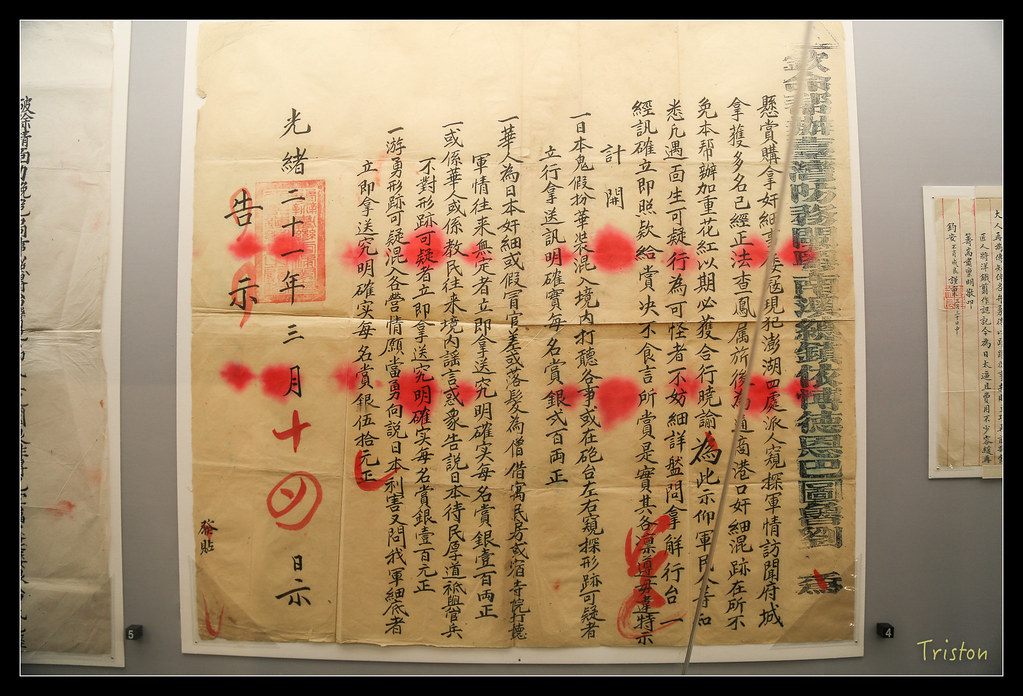 欽命幫辦臺灣防務閩粵南澳總鎮依博德恩巴圖魯劉 為
懸賞購拿奸細事 倭寇現犯澎湖四處派人窺探軍情訪聞府城
拿獲多名已經正法查鳳屬旅後為通商港口奸細混跡在所不
免本帮辦加重花紅以期必獲合行曉諭為此示仰軍民人等知
悉凡遇面生可疑行為可怪者不妨細詳盤問拿解行台一
經訊確立即照欵給賞决不食言所賞是實其各凛遵毋違特示
計開
一日本鬼假扮華裝混入境內打聽各事或在砲台左右窺探形跡可疑者
立行拿送訊明確實每名賞銀弍百両正
一華人為日本奸細或假冒官差或落髮為僧借寓民房或宿寺院打聽
軍情往來無定者立即拿送究明確实每名賞銀壹百両正
一或係華人或係教民往来境內謡言惑衆告説日本待民厚道祗與官兵
不對形跡可疑者立即拿送究明確实每名賞銀壹百元正
一游勇形跡可疑混入各營情願當勇向説日本利害又問我軍細底者
立即拿送究明確实每名賞銀伍拾元正
光緒二十一年三月十四日示
告示
發貼
5
4
Triston